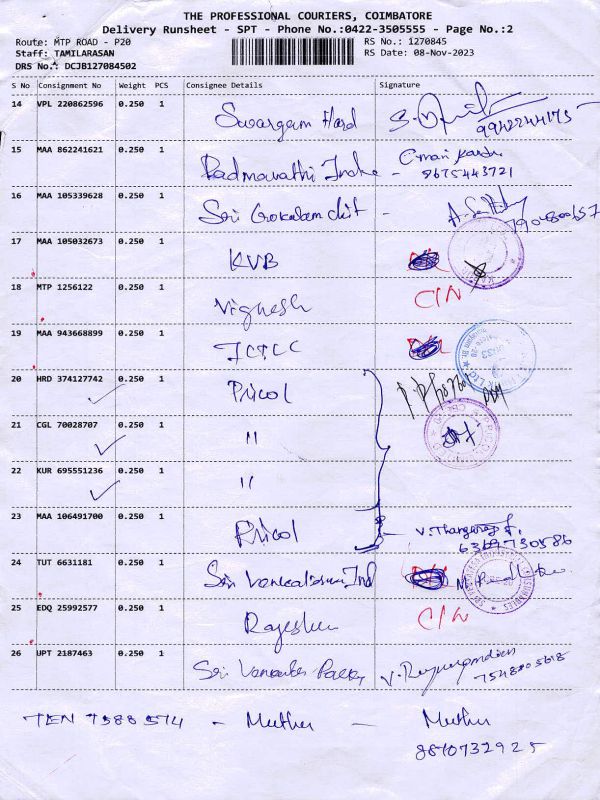 THE PROFESSIONAL COURIERS, COIMBATORE
Delivery Runsheet - SPT - Phone No.:0422-3505555 - Page No.:2
Route: MTP ROAD - P20
RS No.: 1270845
Staff: TAMILARASAN
RS Date: 08-Nov-2023
DRS No.: DCJB127084502
S No Consignment No Weight PCS Consignee Details Signature
14 VPL 220862596 0.250 1 Swargam Hard
9942244175
15 MAA 862241621 0.250 1 Padmavathi Inds -
8675443721
16 MAA 105339628 0.250 1 Sri Gokulam chit -
17 MAA 105032673 0.250 1 KVB
18 MTP 1256122 0.250 1 Vignesh C/N
19 MAA 943668899 0.250 1
20 HRD 374127742 0.250 1 Pricol
21 CGL 70028707 0.250 1 "
22 KUR 695551236 0.250 1 "
23 MAA 106491700 0.250 1 Pricol V. Thangaraj
6369730586
24 TUT 6631181 0.250 1 Sri Ind
25 EDQ 25992577 0.250 1 C/N
26 UPT 2187463 0.250 1 Sri
TEN 7588574 - Muthu - Muthu
8870732925